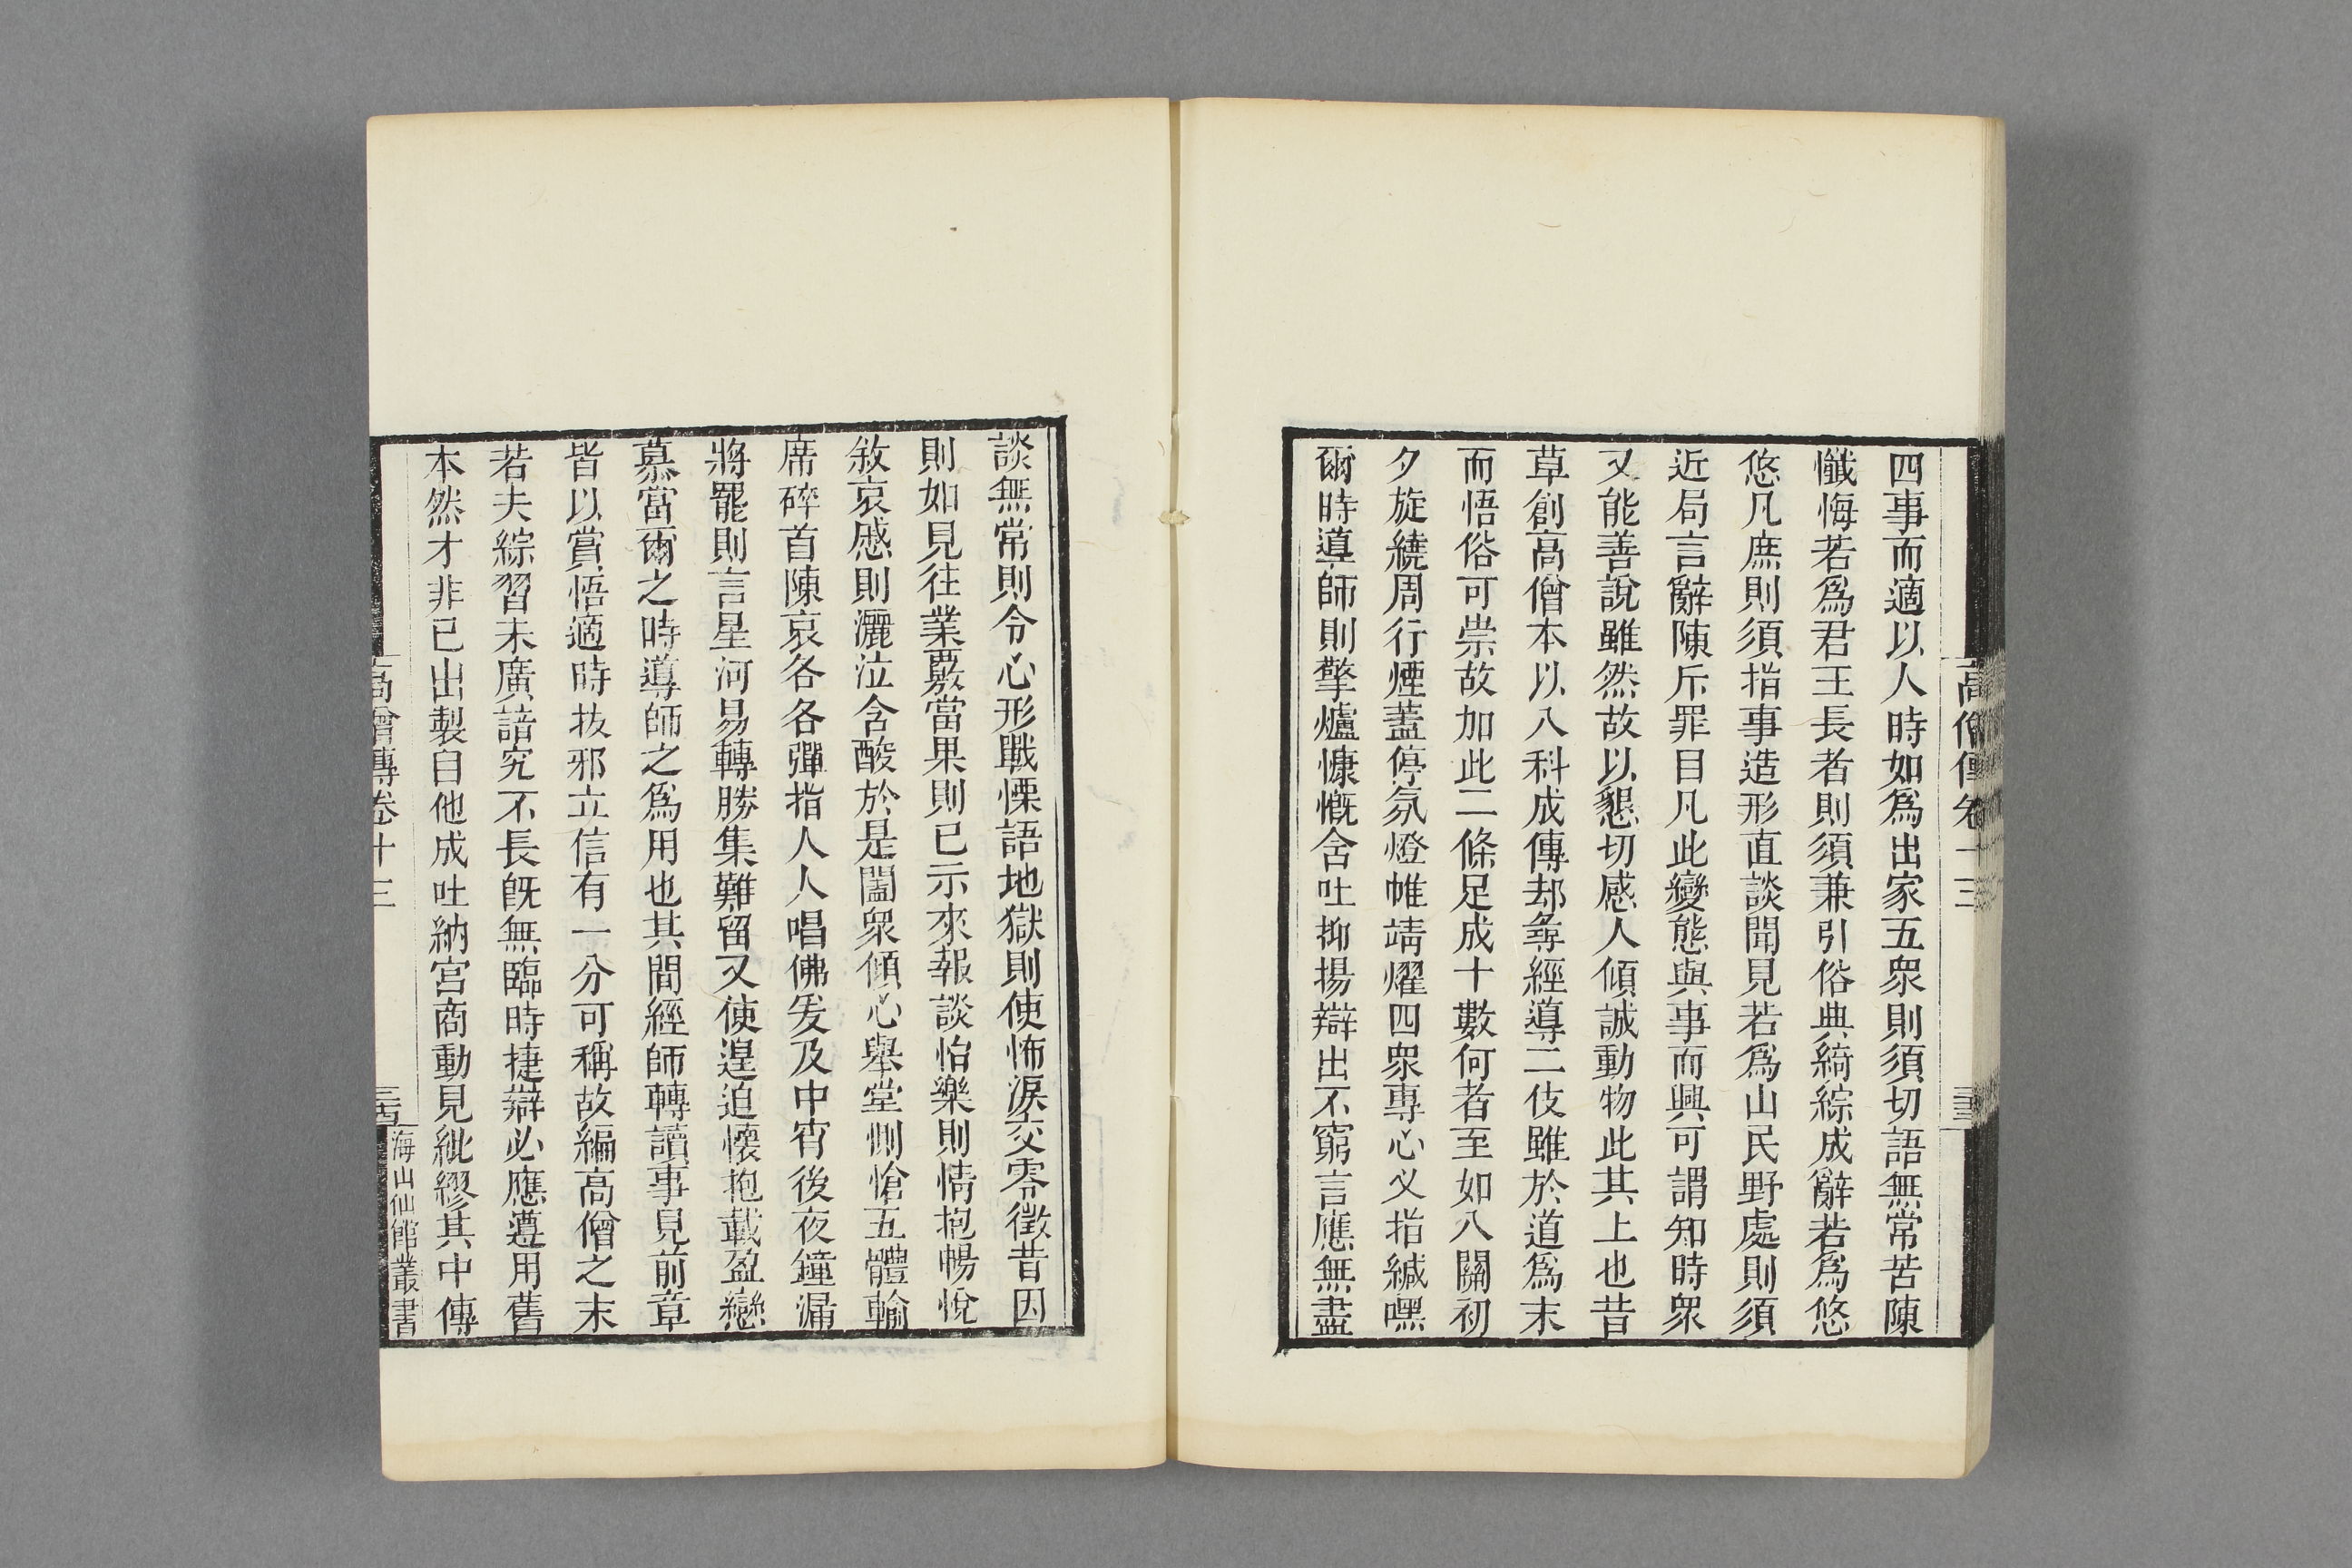 高僧傳卷十三
四事而適以人時如爲出家五衆則須切語無常苦陳
懺悔若爲君王長者則須兼引俗典綺綜成辭若爲悠
悠凡庶則須指事造形直談聞見若爲山民野處則須
近局言辭陳斥罪目凡此變態與事而興可謂知時衆
又能善說雖然故以懇切感人傾誠動物此其上也昔
草創高僧本以八科成傳却尋經導二伎雖於道爲末
而悟俗可崇故加此二條足成十數何者至如八關初
夕旋繞周行煙蓋停氛燈帷靖燿四衆專心义指緘嘿
爾時導師則擎爐慷慨含吐抑揚辯出不窮言應無盡
談無常則令心形戰慄語地獄則使怖淚交零徵昔因
則如見往業覈當果則已示來報談怡樂則情抱暢悅
敘哀慼則灑泣含酸於是闔衆傾心舉堂惻愴五體輸
席碎首陳哀各各彈指人人唱佛爰及中宵後夜鐘漏
將罷則言星河易轉勝集難留又使遑迫懷抱載盈戀
慕當爾之時導師之爲用也其間經師轉讀事見前章
皆以賞悟適時拔邪立信有一分可稱故編高僧之末
若夫綜習未廣諳究不長旣無臨時捷辯必應遵用舊
本然才非已出製自他成吐納宮商動見紕繆其中傳
高僧傳卷十三
海山仙館叢書